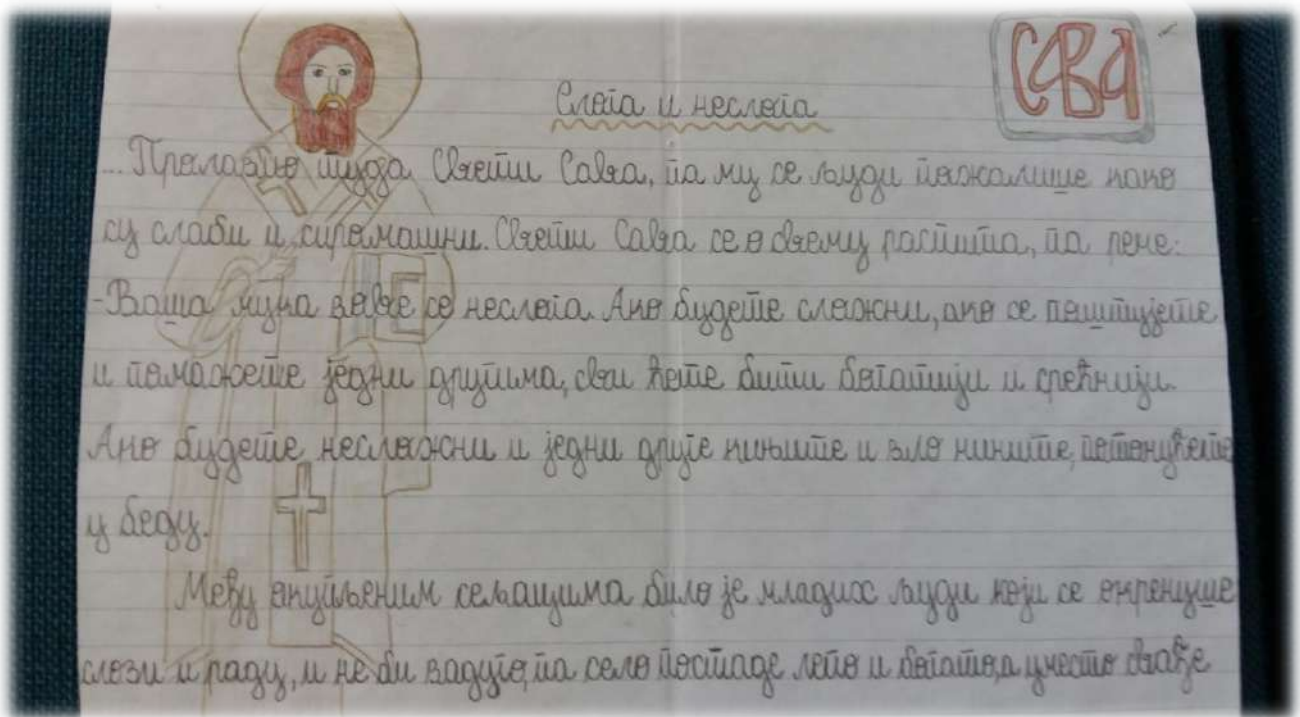 САВА
Слога и неслога
...Пролазио туда Свети Сава, па му се људи пожалише како
су слаби и сиромашни. Свети Сава се о свему распита, па рече:
-Ваша мука зове се неслога. Ако будете сложни, ако се поштујете
и помажете једни другима, сви ћете бити богатији и срећнији.
Ако будете несложни и једни друге кињите и зло чините, потонућете
у беду.
Међу окупљеним сељацима било је младих људи који се окренуше
слози и раду, и не би задуго, па село постаде лепо и богато, а уместо свађе